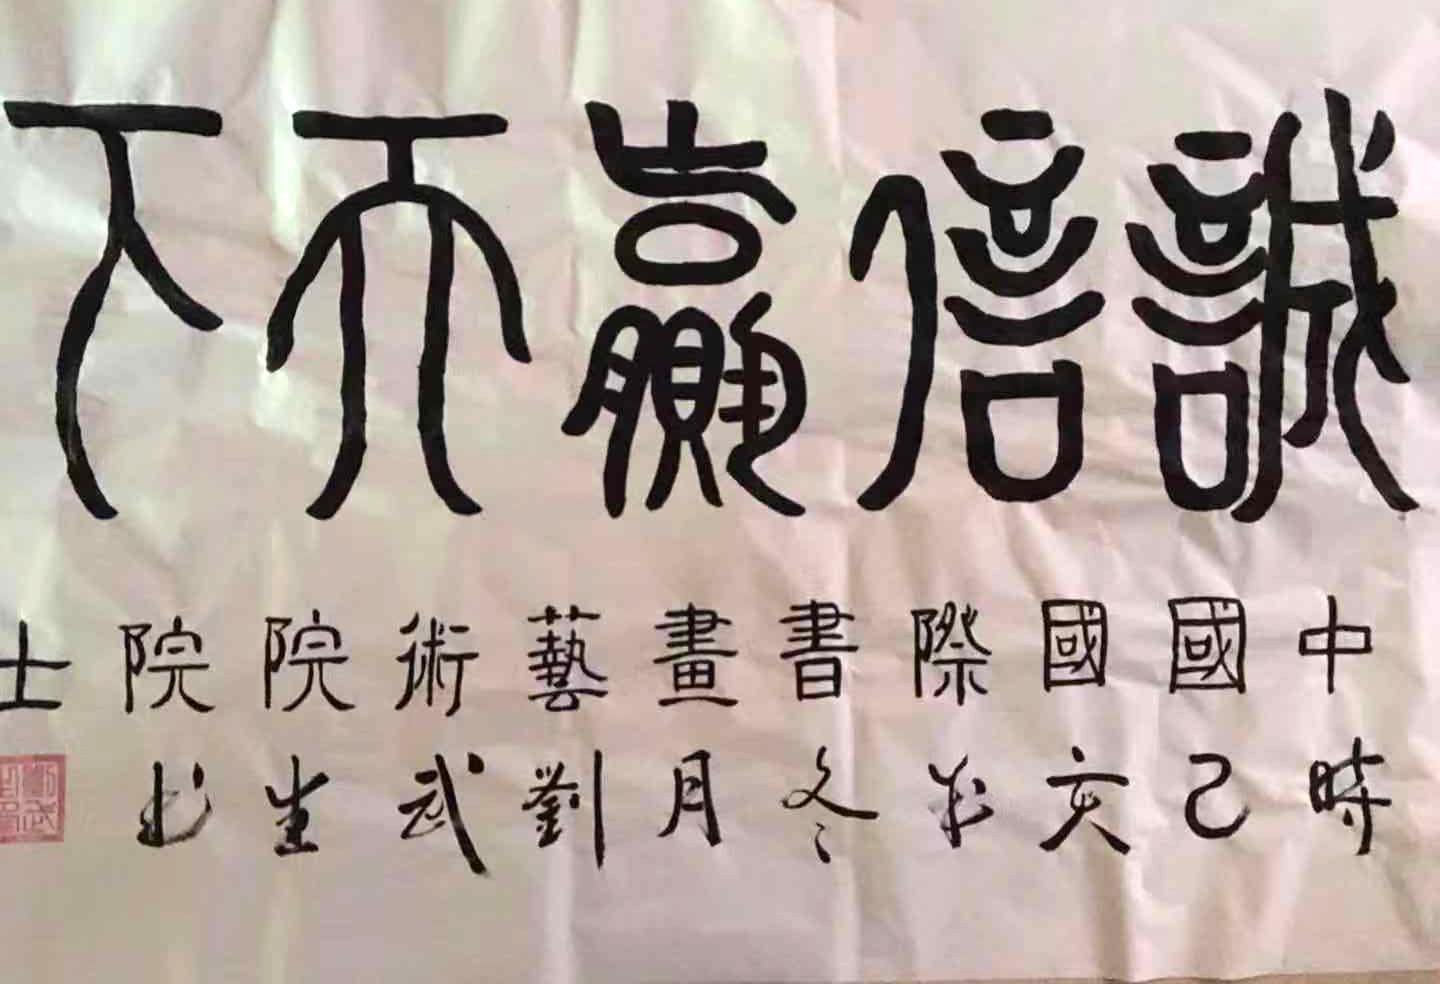 誠信贏天下
中國國際書畫藝術院院士
時己亥年冬月劉武生书